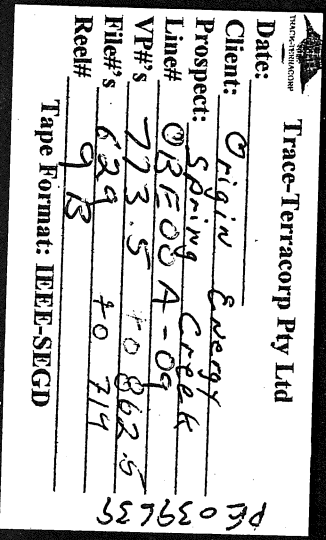 TRACE-TERRACORP
Trace-Terracorp Pty Ltd
Date:
Client: Origin Energy
Prospect: Spring Creek
Line# OBE00A-09
VP#'s 773.5 to 862.5
File#'s 629 to 714
Reel# 9B
Tape Format: IEEE-SEGD
PE039639